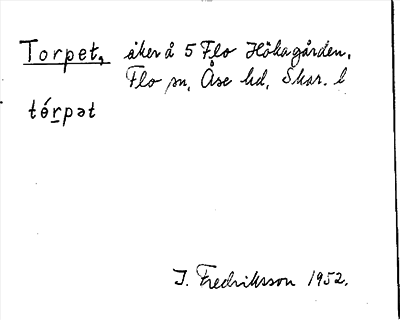 Torpet, åker å 5 Flo Hökagården,
Flo sn, Åse hd, Skar. l
tórpət
I. Fredriksson 1952.